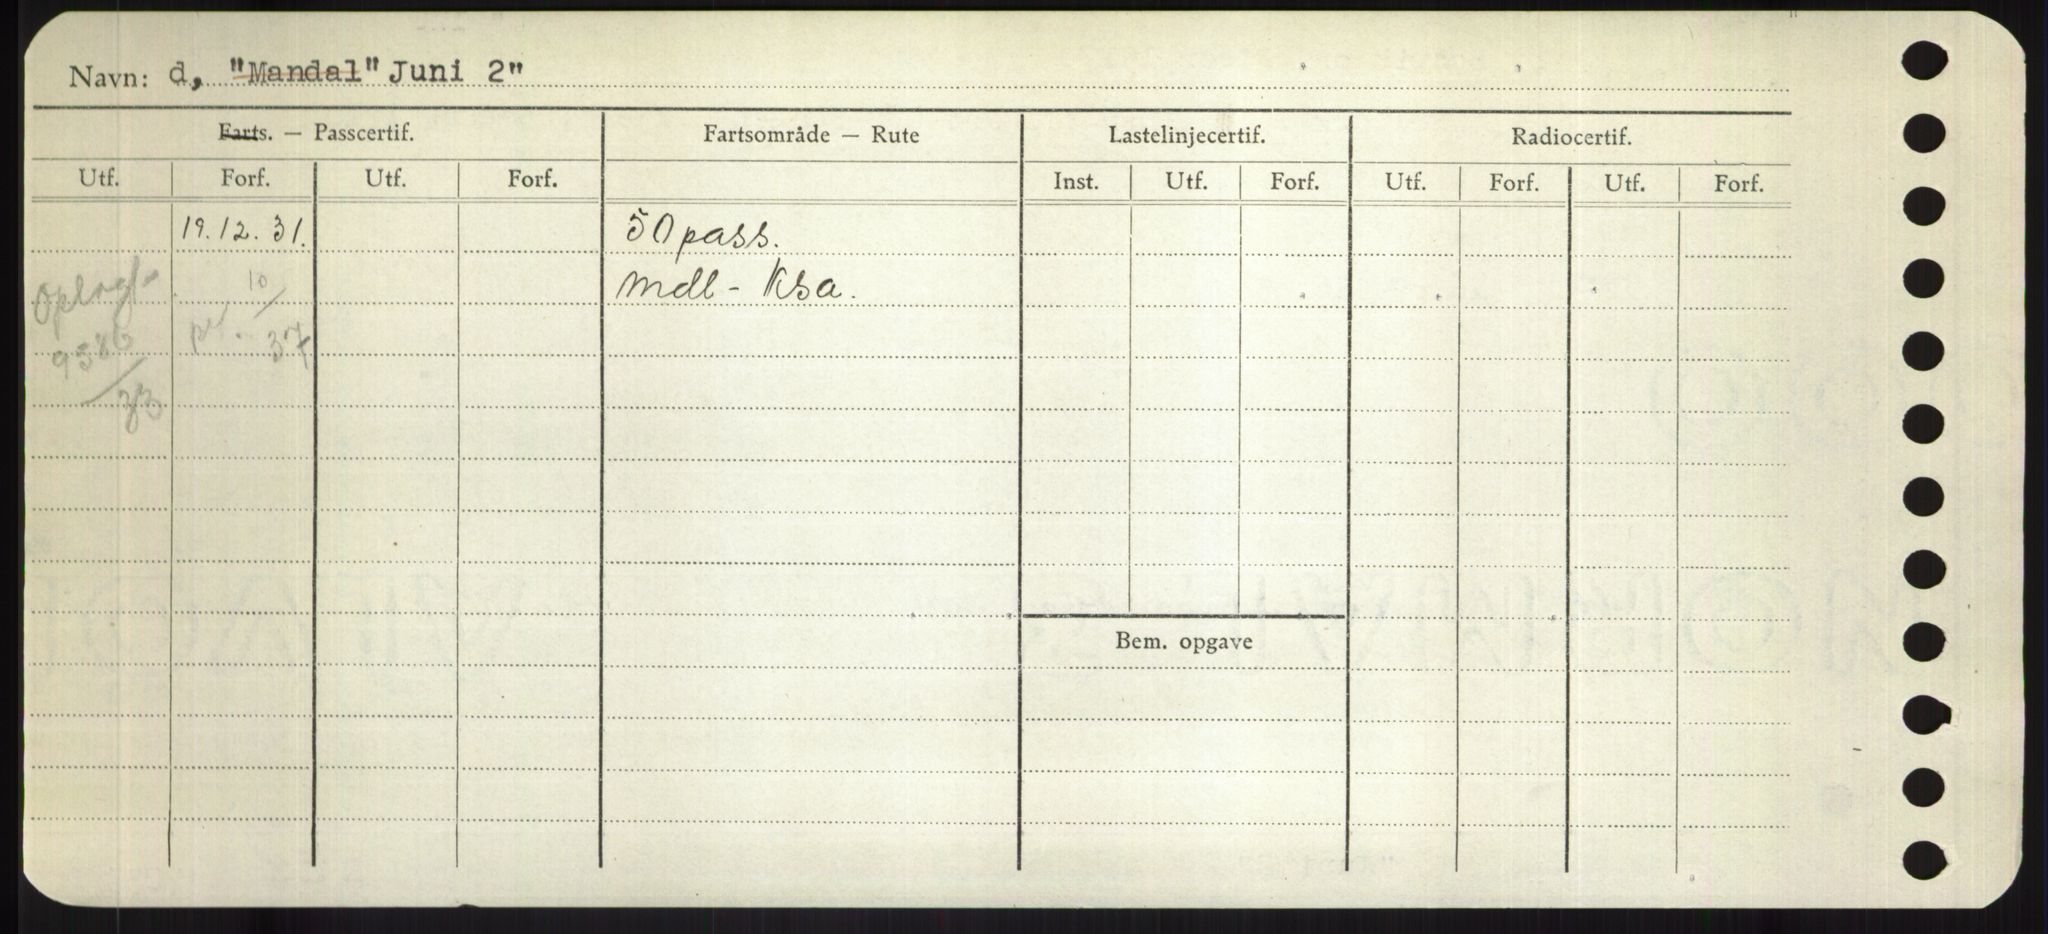 Navn: d, "Mandal" Juni 2"
Farts. — Passcertif. Fartsområde — Rute Lastelinjecertif. Radiocertif.
Utf. Forf. Utf. Forf. Inst. Utf. Forf. Utf. Forf. Utf. Forf.
19.12.31. 50 pass.
Mdl - Ksa.
Oplagt 10/
9586 37
/33
Bem. opgave